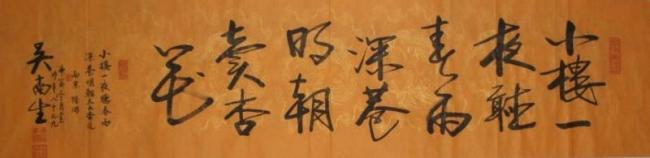 小樓一
夜聽
春雨
深巷
明朝
賣杏
花
小樓一夜聽春雨
深巷明朝賣杏花
南宋 陸游
吴南生